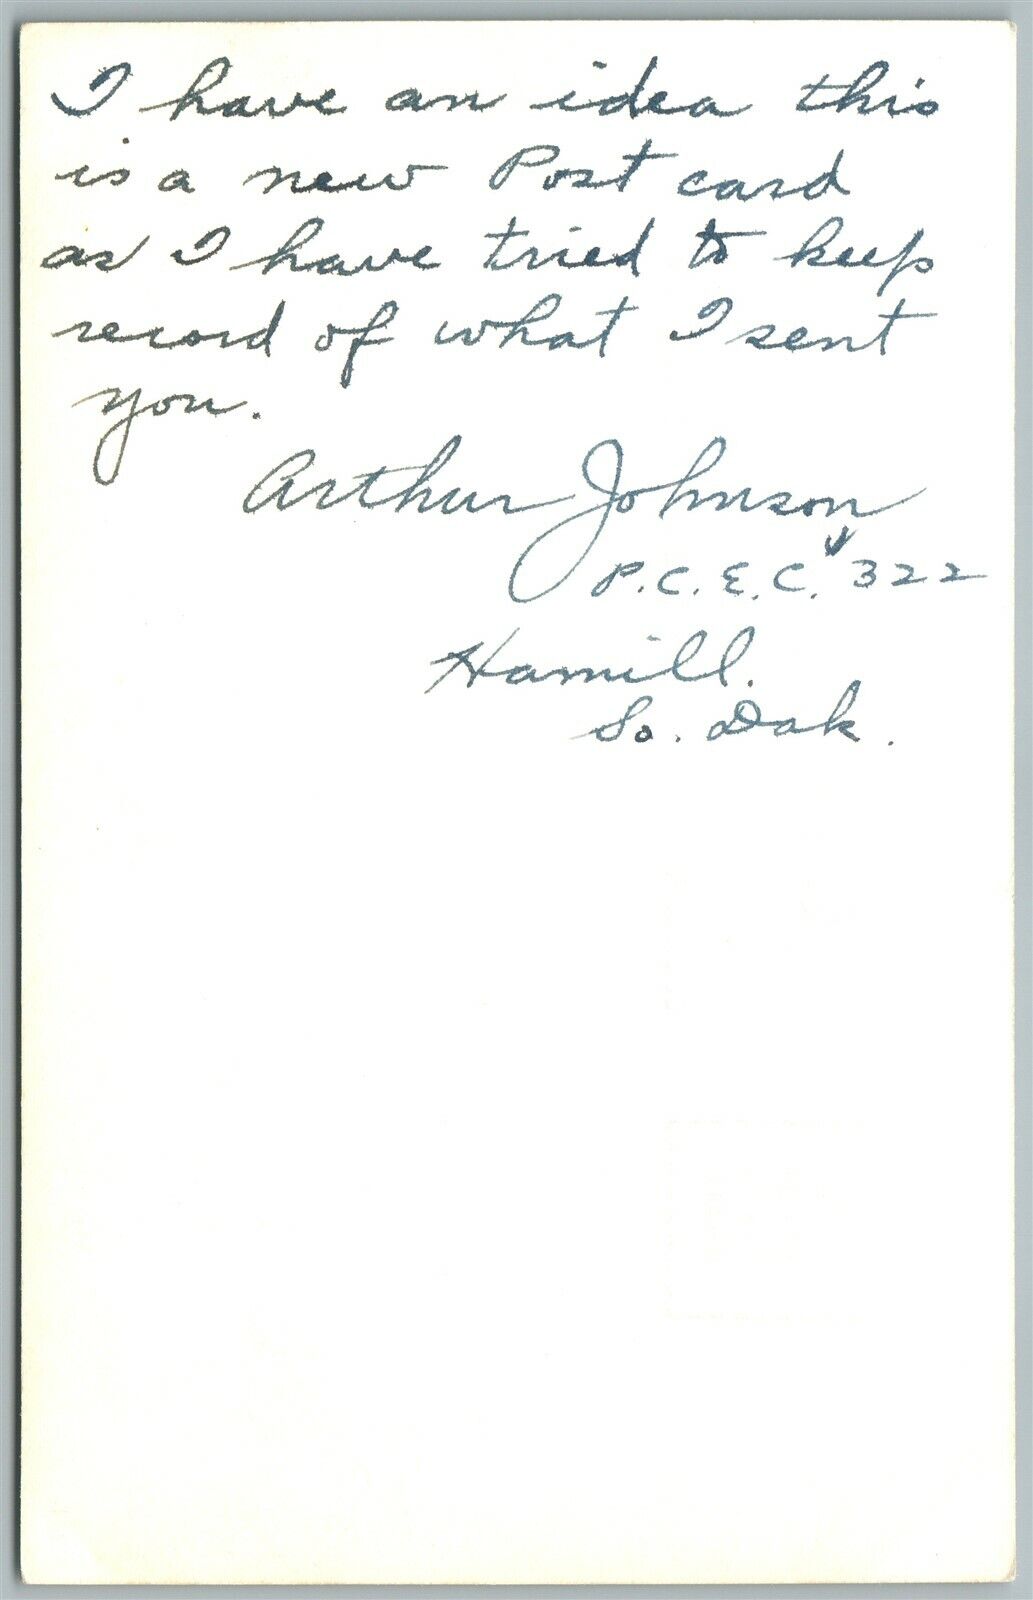 I have an idea this
is a new Post card
as I have tried to keep
record of what I sent
you.
Arthur Johnson
P.C.E.C. 322
Hamill.
So. Dak.